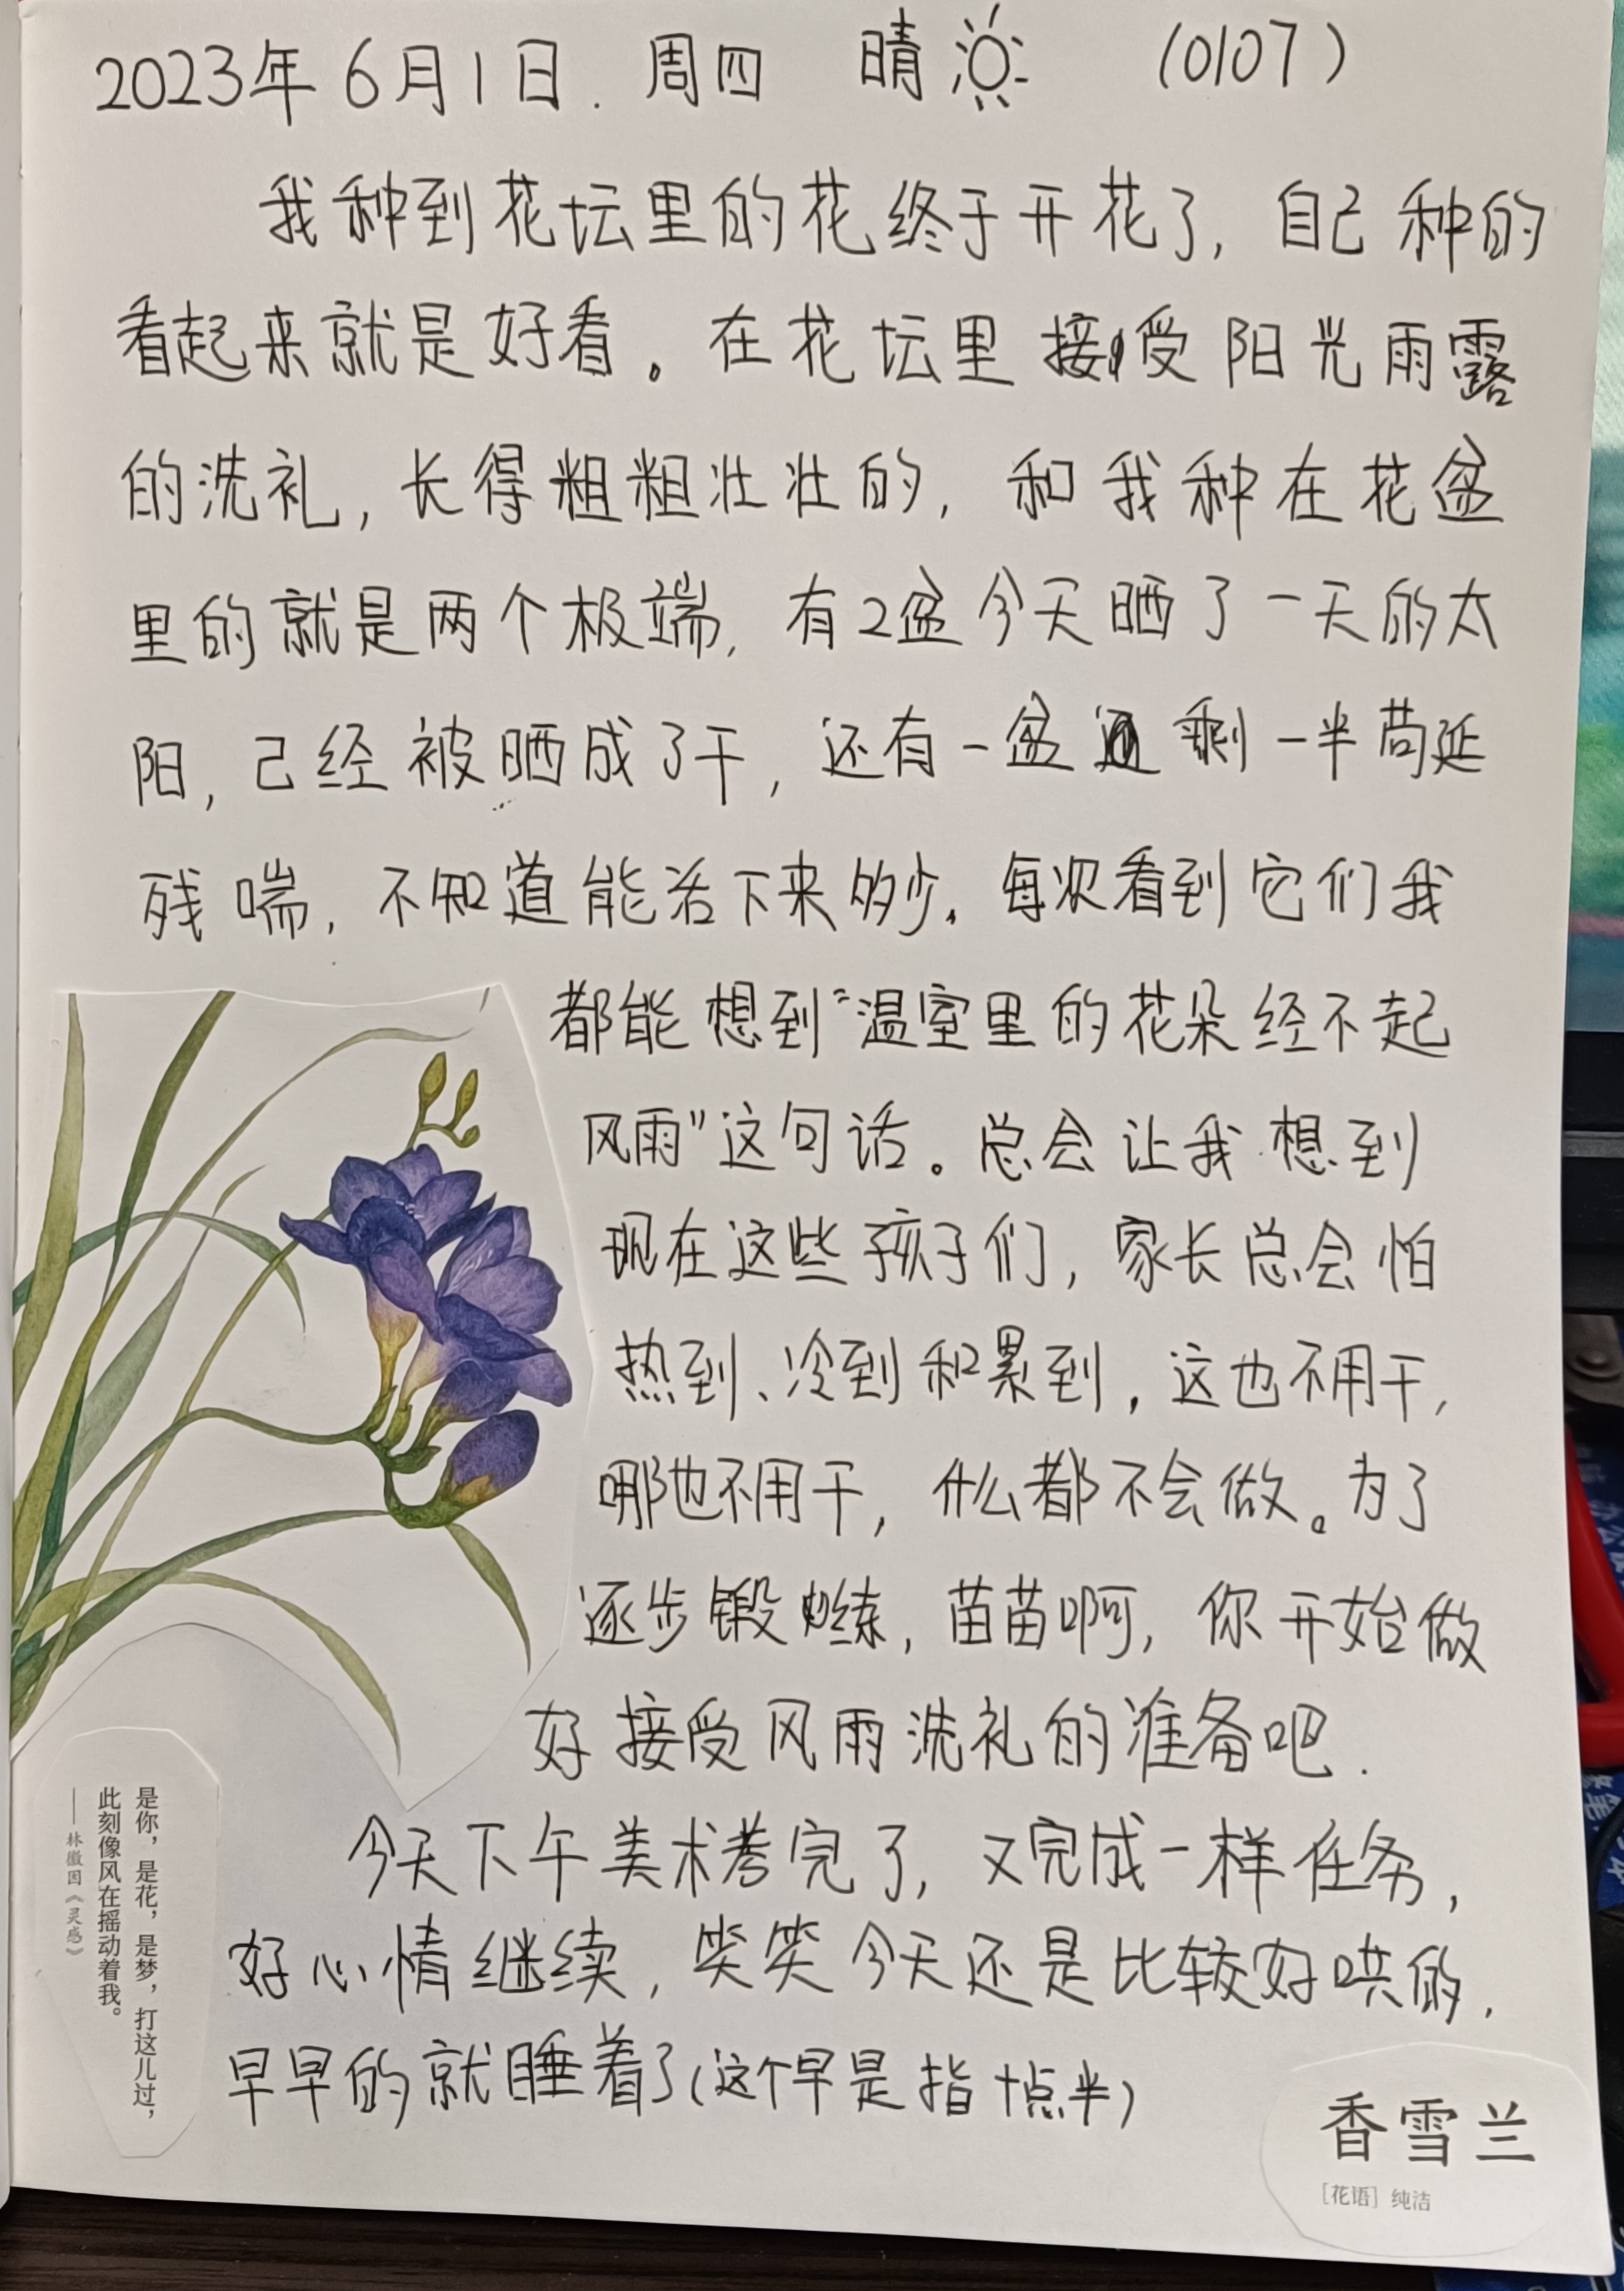 2023年6月1日. 周四 晴 (0107)
我种到花坛里的花终于开花了, 自己种的
看起来就是好看。在花坛里接受阳光雨露
的洗礼, 长得粗粗壮壮的, 和我种在花盆
里的就是两个极端, 有2盆今天晒了一天的太
阳, 己经被晒成了干, 还有一盆剩一半苟延
残喘, 不知道能活下来多少. 每次看到它们我
都能想到“温室里的花朵经不起
风雨”这句话。总会让我想到
现在这些孩子们, 家长总会怕
热到、冷到和累到, 这也不用干,
哪也不用干, 什么都不会做。为了
逐步锻炼, 苗苗啊, 你开始做
好接受风雨洗礼的准备吧.
今天下午美术考完了, 又完成一样任务,
好心情继续, 笑笑今天还是比较好哄的,
早早的就睡着了(这个早是指十点半)
是你，是花，是梦，打这儿过，
此刻像风在摇动着我。
——林徽因《灵感》
香雪兰
[花语] 纯洁